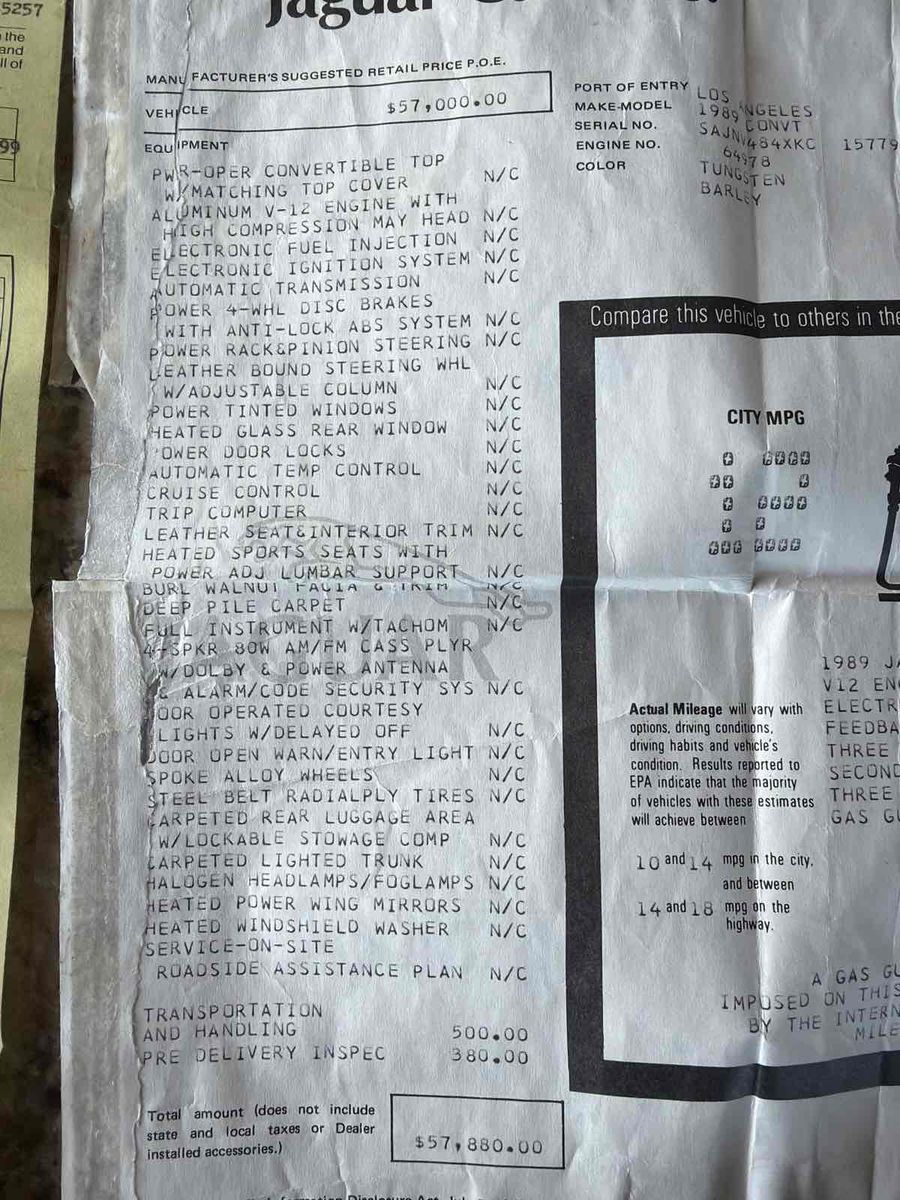 5257
the
and
ll of
99
Jaguar
MANUFACTURER'S SUGGESTED RETAIL PRICE P.O.E.
VEHICLE $57,000.00
EQUIPMENT
PWR-OPER CONVERTIBLE TOP
W/MATCHING TOP COVER N/C
ALUMINUM V-12 ENGINE WITH
HIGH COMPRESSION MAY HEAD N/C
ELECTRONIC FUEL INJECTION N/C
ELECTRONIC IGNITION SYSTEM N/C
AUTOMATIC TRANSMISSION N/C
POWER 4-WHL DISC BRAKES
WITH ANTI-LOCK ABS SYSTEM N/C
POWER RACK&PINION STEERING N/C
LEATHER BOUND STEERING WHL
W/ADJUSTABLE COLUMN N/C
POWER TINTED WINDOWS N/C
HEATED GLASS REAR WINDOW N/C
POWER DOOR LOCKS N/C
AUTOMATIC TEMP CONTROL N/C
CRUISE CONTROL N/C
TRIP COMPUTER N/C
LEATHER SEAT&INTERIOR TRIM N/C
HEATED SPORTS SEATS WITH
POWER ADJ LUMBAR SUPPORT N/C
BURL WALNUT FACIA & TRIM N/C
DEEP PILE CARPET N/C
FULL INSTRUMENT W/TACHOM N/C
4-SPKR 80W AM/FM CASS PLYR
W/DOLBY & POWER ANTENNA
& ALARM/CODE SECURITY SYS N/C
DOOR OPERATED COURTESY
LIGHTS W/DELAYED OFF N/C
DOOR OPEN WARN/ENTRY LIGHT N/C
SPOKE ALLOY WHEELS N/C
STEEL BELT RADIALPLY TIRES N/C
CARPETED REAR LUGGAGE AREA
W/LOCKABLE STOWAGE COMP N/C
CARPETED LIGHTED TRUNK N/C
HALOGEN HEADLAMPS/FOGLAMPS N/C
HEATED POWER WING MIRRORS N/C
HEATED WINDSHIELD WASHER N/C
SERVICE-ON-SITE
ROADSIDE ASSISTANCE PLAN N/C
TRANSPORTATION
AND HANDLING 500.00
PRE DELIVERY INSPEC 380.00
Total amount (does not include
state and local taxes or Dealer
installed accessories.)
$57,880.00
PORT OF ENTRY LOS ANGELES
MAKE-MODEL 1989 CONVT
SERIAL NO. SAJNV484XKC 15779
ENGINE NO. 64978
COLOR TUNGSTEN
BARLEY
Compare this vehicle to others in the
CITY MPG
1989 JA
V12 EN
ELECTR
FEEDBA
THREE
SECOND
THREE
GAS GU
Actual Mileage will vary with
options, driving conditions,
driving habits and vehicle's
condition. Results reported to
EPA indicate that the majority
of vehicles with these estimates
will achieve between
10 and 14 mpg in the city,
and between
14 and 18 mpg on the
highway.
A GAS GU
IMPOSED ON THIS
BY THE INTERN
MILE
JAGUAR